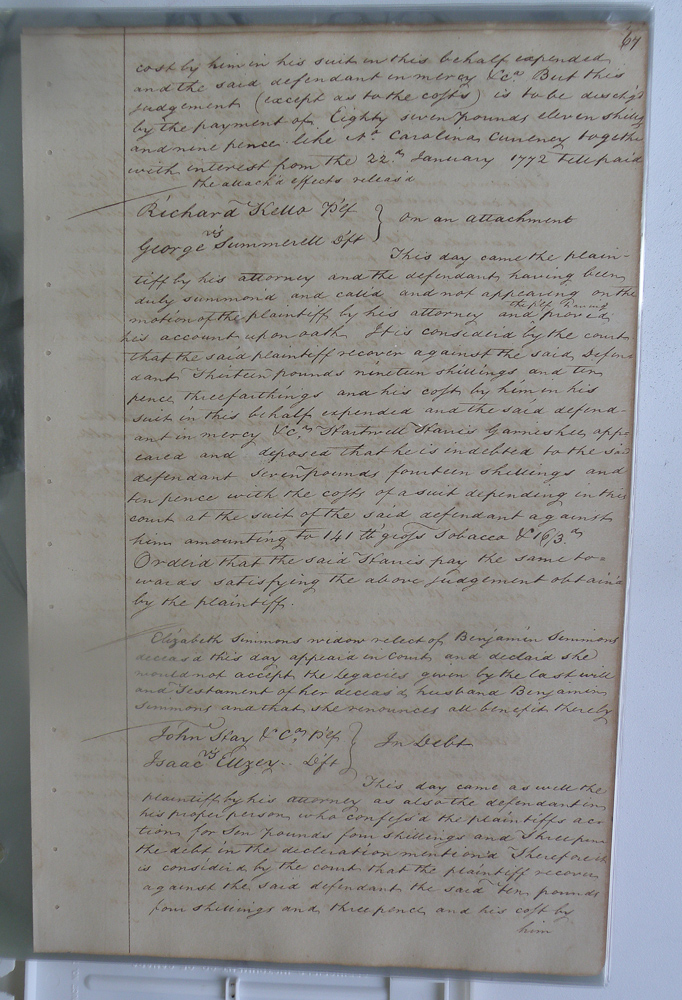 67
cost by him in his suit in this behalf expended
and the said defendant in mercy &ca. But this
judgement (except as to the costs) is to be disch'd
by the payment of Eighty seven pounds eleven shilly
and nine pence like No. Carolina Currency together
with interest from the 22.d January 1772 till paid
the attach'd effects releas'd
Richard Kello Plf
vs
George Summerell Dft
} On an attachment
This day came the plain-
tiff by his attorney and the defendant having been
duly summond and call'd and not appearing on the
motion of the plaintiff by his attorney and the plf having proved
his account upon oath It is considerd by the court
that the said plaintiff recover against the said Defen
dant Thirteen pounds nineteen shillings and ten
pence three farthings and his cost by him in his
suit in this behalf expended and the said defend-
ant in mercy &ca. Hartwell Harris Garnishee app
eared and deposed that he is indebted to the said
defendant Seven pounds fourteen shillings and
ten pence with the costs of a suit depending in this
court at the suit of the said defendant against
him amounting to 141 lb gross Tobacco & 16/3
Orderd that the said Harris pay the same to-
wards satisfying the above judgement obtain'd
by the plaintiff.
Elizabeth Simmons widow relect of Benjamin Simmons
deceas'd this day appeard in Court and declard she
would not accept the legacies given by the last will
and Testament of her deceas'd husband Benjamin
Simmons and that she renounces all benefit thereby
John Hay & Co. Plf
vs
Isaac Ellzey Dft
} In Debt
This day came as well the
plaintiff by his attorney as also the defendant in
his proper person who confess'd the plaintiffs ac-
tion for Ten pounds four shillings and three pence
the debt in the declaration mention'd Therefore it
is considerd by the court that the plaintiff recover
against the said defendant the said ten pounds
four shillings and three pence and his cost by
him